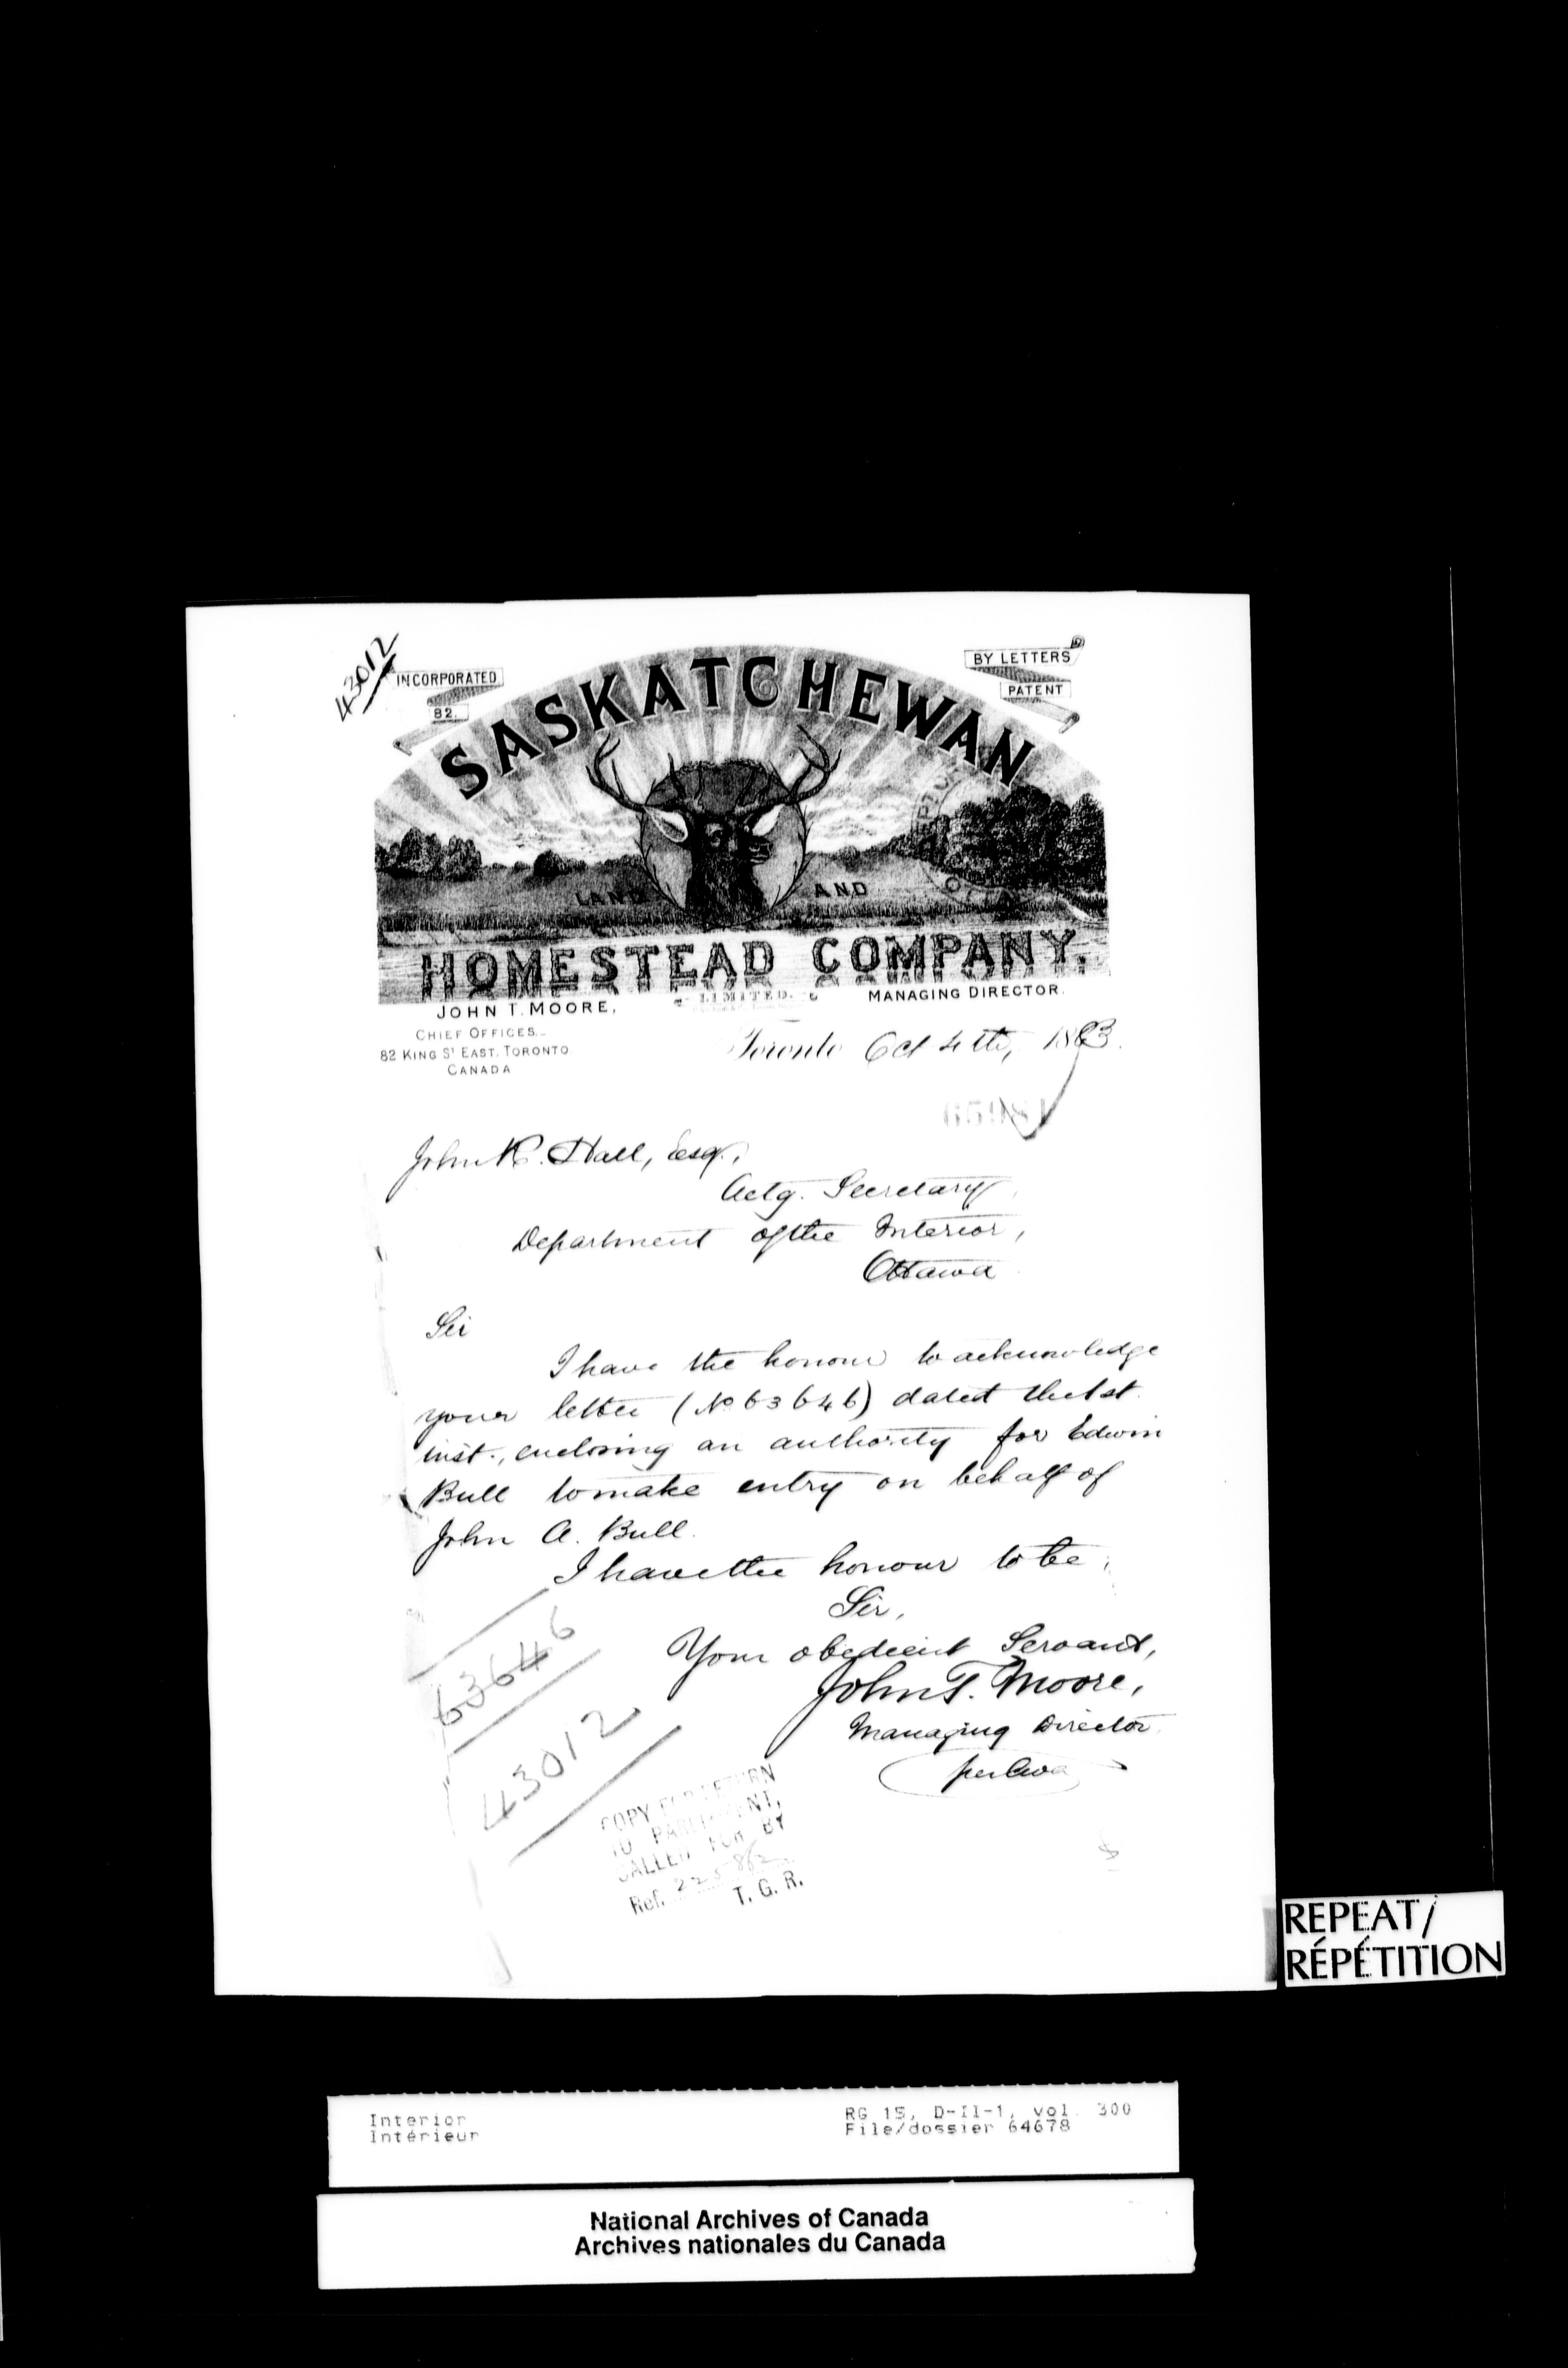 43012
INCORPORATED
82.
BY LETTERS
PATENT
SASKATCHEWAN
LAND AND
HOMESTEAD COMPANY,
LIMITED.
JOHN T. MOORE, MANAGING DIRECTOR.
CHIEF OFFICES.
82 KING ST EAST, TORONTO
CANADA
Toronto Oct 4th, 1883.
65981
John R. Hall, Esq.,
Actg. Secretary
Department of the Interior,
Ottawa
Sir
I have the honour to acknowledge
your letter (No 63646) dated the 1st.
inst., enclosing an authority for Edwin
Bull to make entry on behalf of
John A. Bull.
I have the honour to be,
Sir,
Your obedient Servant,
John T. Moore,
Managing Director
per
63646
43012
COPY FOR RETURN
TO PARLIAMENT,
CALLED FOR BY
Ref.
T. G. R.
REPEAT/
RÉPÉTITION
Interior
Intérieur
RG 15, D-II-1, vol. 300
File/dossier 64678
National Archives of Canada
Archives nationales du Canada